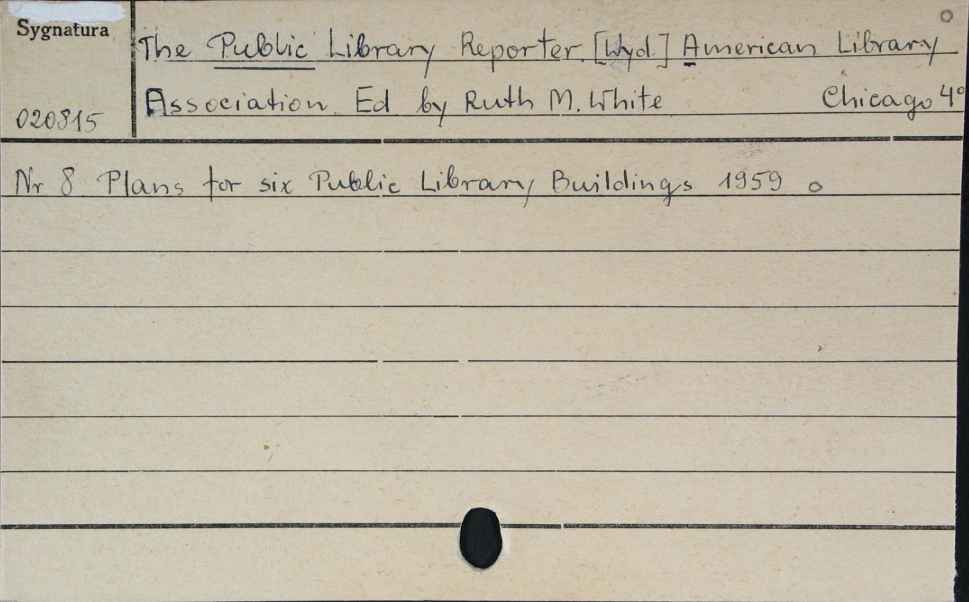 Sygnatura
020815
The Public Library Reporter. [Wyd.] American Library
Association. Ed by Ruth M. White Chicago 4°
Nr 8 Plans for six Public Library Buildings 1959 o